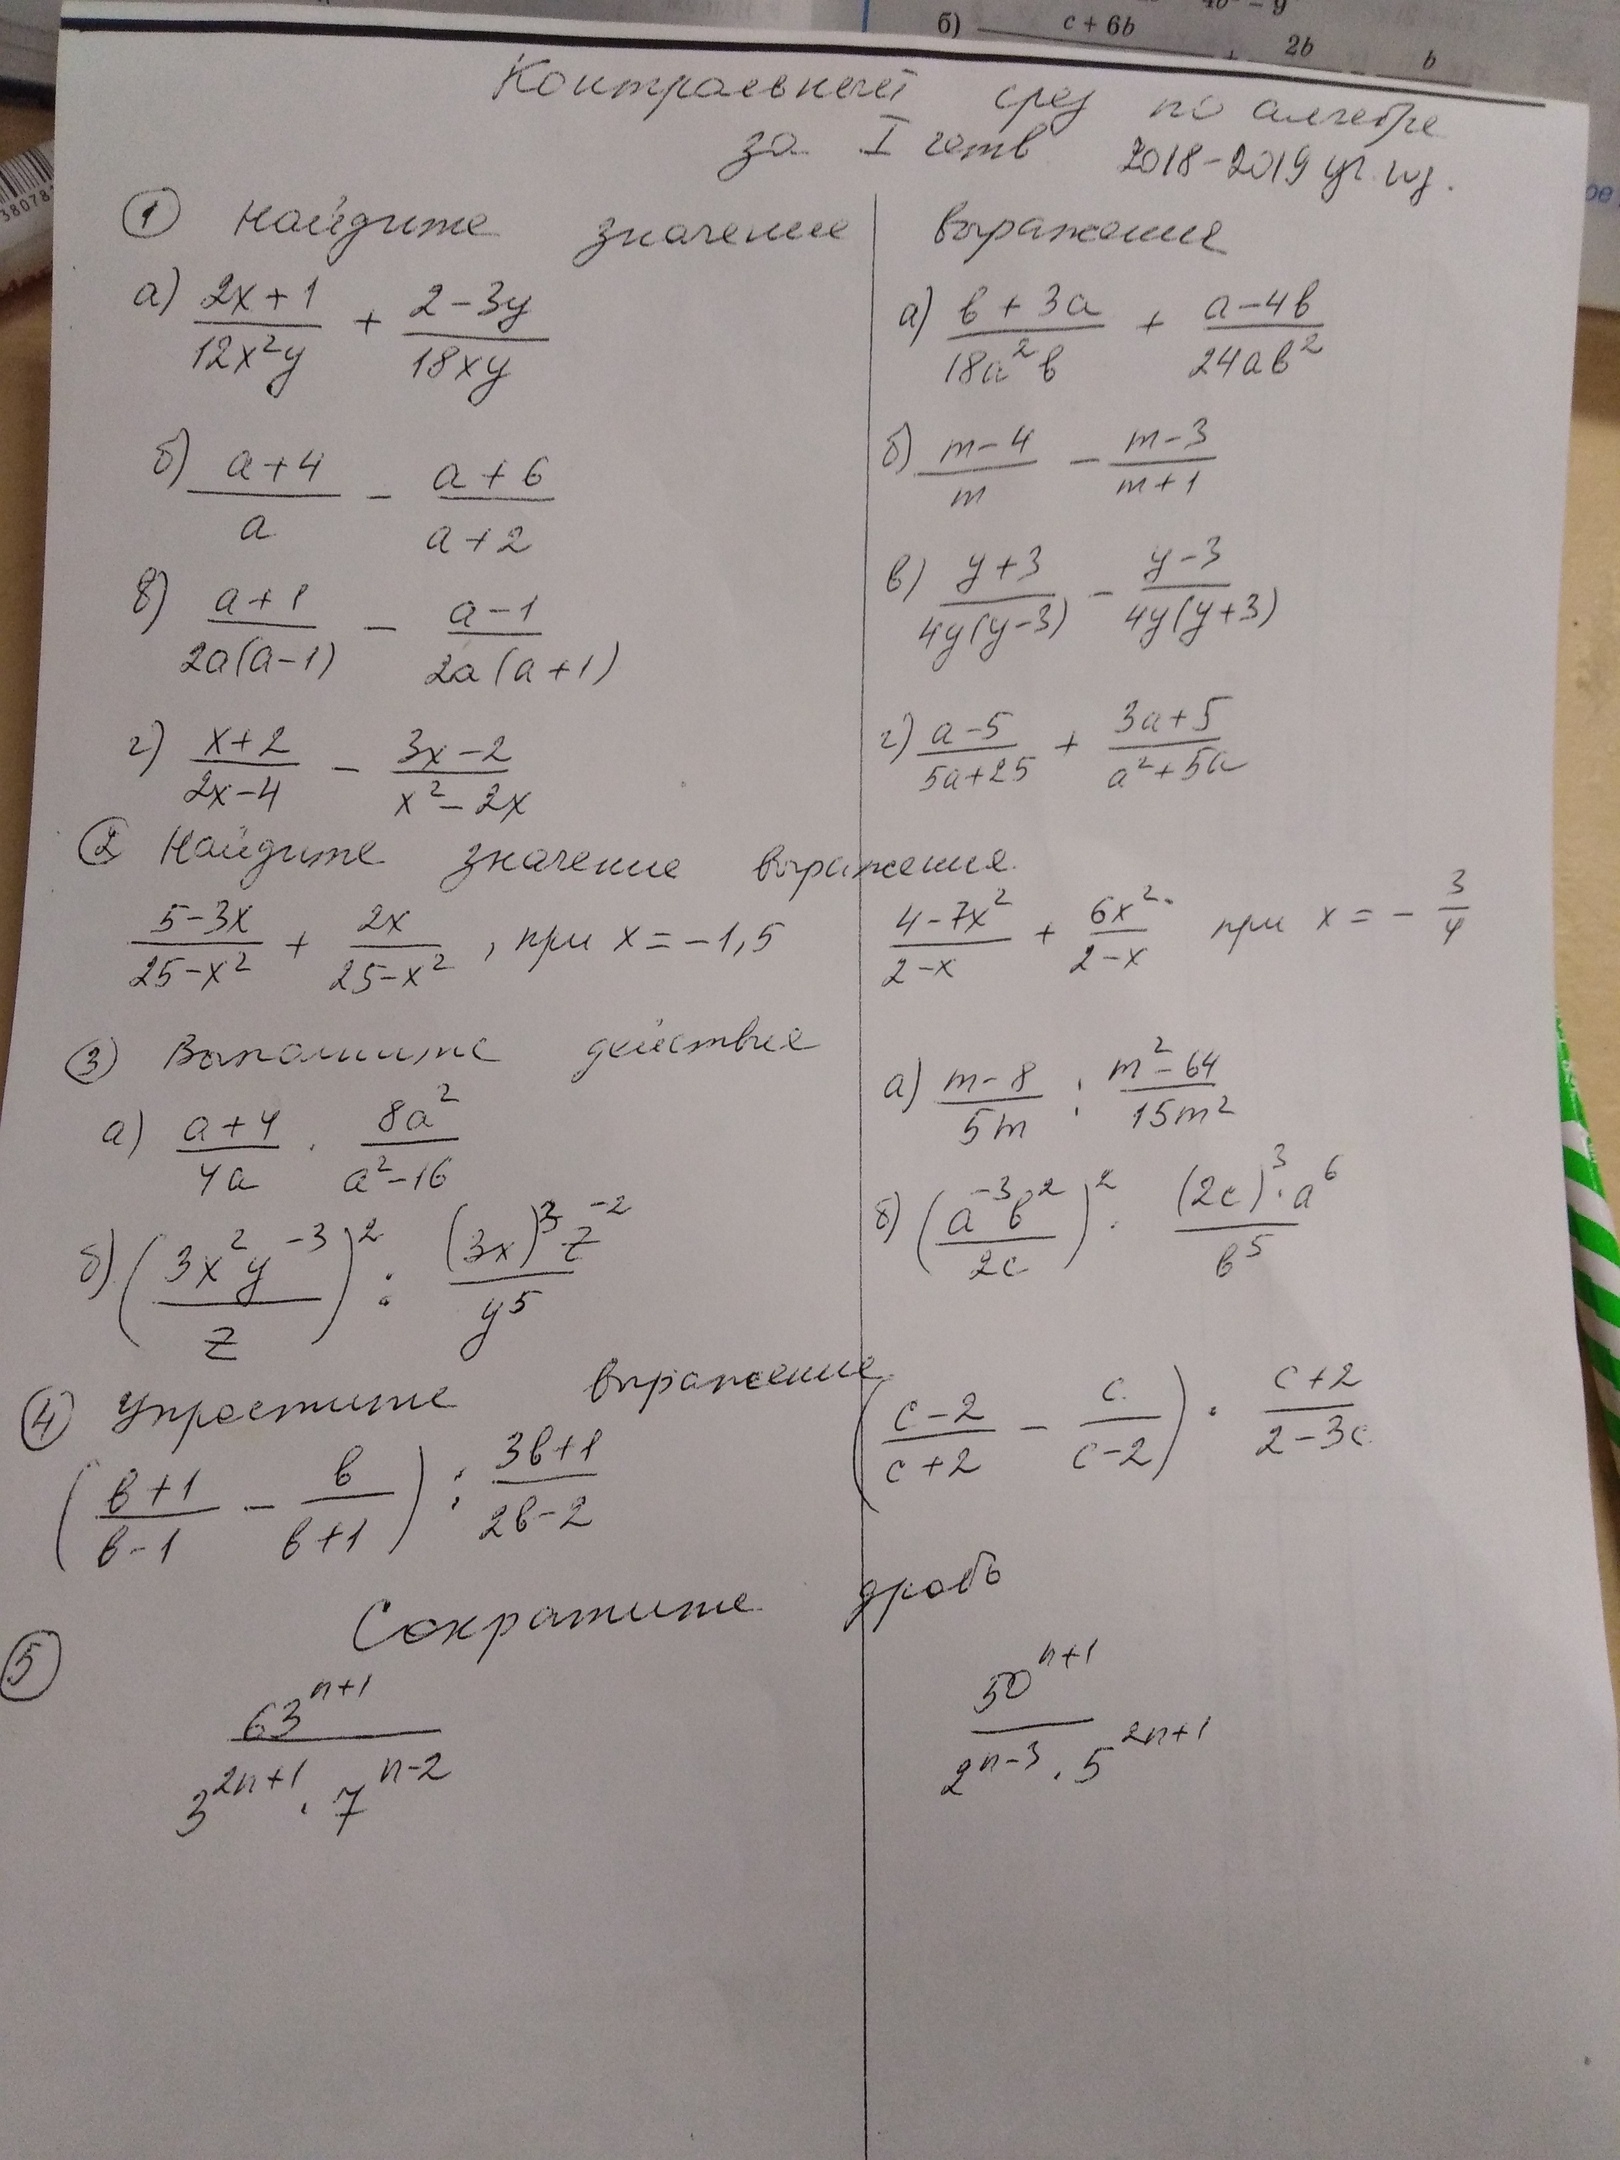 4b² - 9
б) c + 6b
+ 2b b
Контрольный срез по алгебре
за I четв 2018-2019 уг. uz.
① Найдите значение выражения
а) (2x+1)/(12x²y) + (2-3y)/(18xy)
б) (a+4)/a - (a+6)/(a+2)
в) (a+1)/(2a(a-1)) - (a-1)/(2a(a+1))
г) (x+2)/(2x-4) - (3x-2)/(x²-2x)
а) (в+3a)/(18a²в) + (a-4в)/(24aв²)
б) (m-4)/m - (m-3)/(m+1)
в) (y+3)/(4y(y-3)) - (y-3)/(4y(y+3))
г) (a-5)/(5a+25) + (3a+5)/(a²+5a)
② Найдите значение выражения.
(5-3x)/(25-x²) + 2x/(25-x²), при x = -1,5
(4-7x²)/(2-x) + 6x²/(2-x) при x = -3/4
③ Выполните действие
а) (a+4)/(4a) · 8a²/(a²-16)
б) (3x²y⁻³/z)² : (3x)³z⁻²/y⁵
а) (m-8)/(5m) : (m²-64)/(15m²)
б) (a⁻³в²/(2c))² · (2c)³·a⁶/в⁵
④ Упростите выражение
((в+1)/(в-1) - в/(в+1)) : (3в+1)/(2в-2)
((c-2)/(c+2) - c/(c-2)) · (c+2)/(2-3c)
Сократите дробь
⑤
63ⁿ⁺¹/(3²ⁿ⁺¹ · 7ⁿ⁻²)
50ⁿ⁺¹/(2ⁿ⁻³ · 5²ⁿ⁺¹)